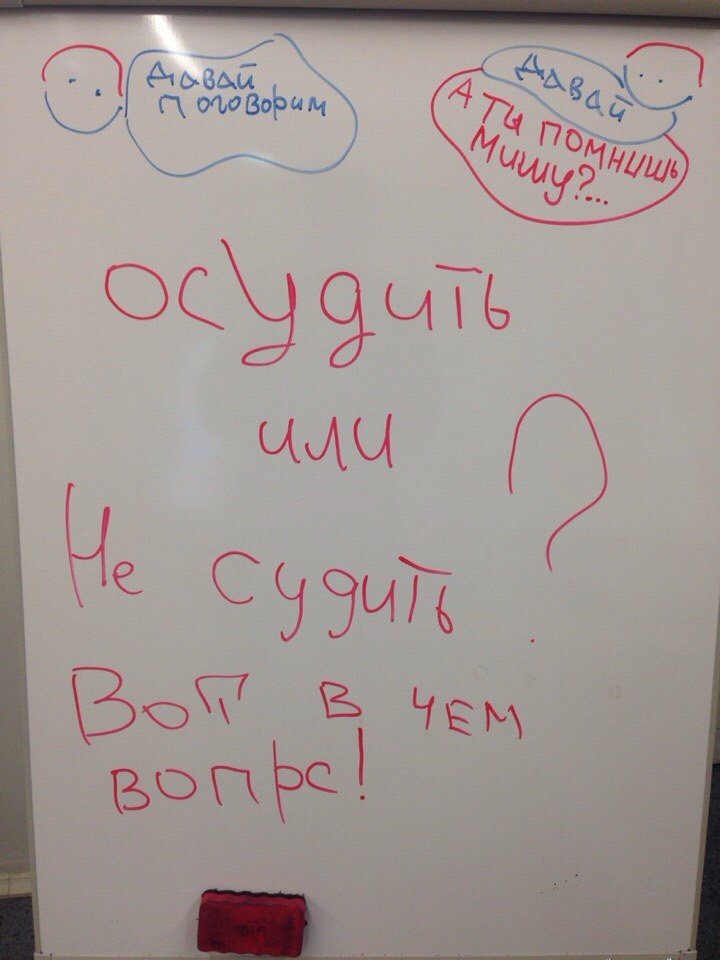 давай
поговорим
давай
А ты помнишь
Мишу?...
осудить
или
Не судить ?
Вот в чем
вопрс!